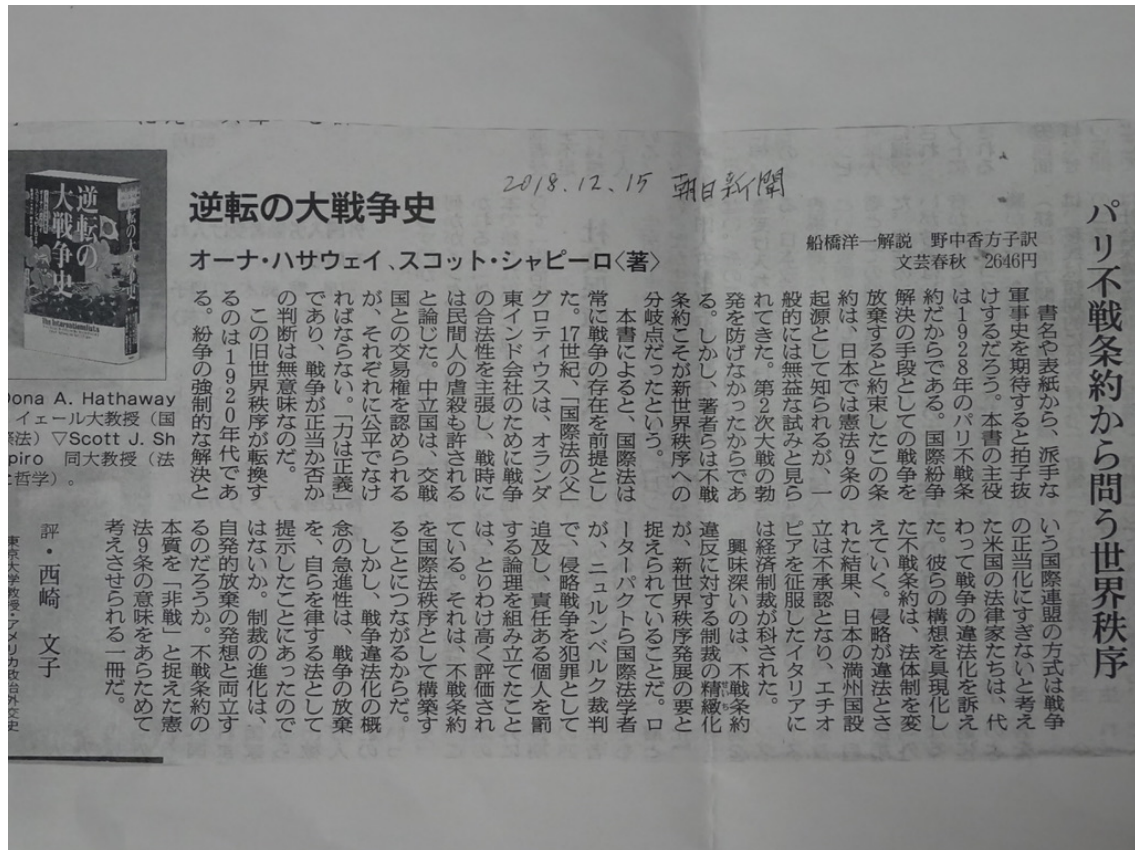 2018.12.15 朝日新聞
パリ不戦条約から問う世界秩序
逆転の大戦争史
オーナ・ハサウェイ、スコット・シャピーロ〈著〉
船橋洋一解説 野中香方子訳
文芸春秋 2646円
書名や表紙から、派手な
軍事史を期待すると拍子抜
けするだろう。本書の主役
は1928年のパリ不戦条
約だからである。国際紛争
解決の手段としての戦争を
放棄すると約束したこの条
約は、日本では憲法9条の
起源として知られるが、一
般的には無益な試みと見ら
れてきた。第2次大戦の勃
発を防げなかったからであ
る。しかし、著者らは不戦
条約こそが新世界秩序への
分岐点だったという。
本書によると、国際法は
常に戦争の存在を前提とし
た。17世紀、「国際法の父」
グロティウスは、オランダ
東インド会社のために戦争
の合法性を主張し、戦時に
は民間人の虐殺も許される
と論じた。中立国は、交戦
国との交易権を認められる
が、それぞれに公平でなけ
ればならない。「力は正義」
であり、戦争が正当か否か
の判断は無意味なのだ。
この旧世界秩序が転換す
るのは1920年代であ
る。紛争の強制的な解決と
いう国際連盟の方式は戦争
の正当化にすぎないと考え
た米国の法律家たちは、代
わって戦争の違法化を訴え
た。彼らの構想を具現化し
た不戦条約は、法体制を変
えていく。侵略が違法とさ
れた結果、日本の満州国設
立は不承認となり、エチオ
ピアを征服したイタリアに
は経済制裁が科された。
興味深いのは、不戦条約
違反に対する制裁の精緻化
が、新世界秩序発展の要と
捉えられていることだ。ロ
ーターパクトら国際法学者
が、ニュルンベルク裁判
で、侵略戦争を犯罪として
追及し、責任ある個人を罰
する論理を組み立てたこと
は、とりわけ高く評価され
ている。それは、不戦条約
を国際法秩序として構築す
ることにつながるからだ。
しかし、戦争違法化の概
念の急進性は、戦争の放棄
を、自らを律する法として
提示したことにあったので
はないか。制裁の進化は、
自発的放棄の発想と両立す
るのだろうか。不戦条約の
本質を「非戦」と捉えた憲
法9条の意味をあらためて
考えさせられる一冊だ。
評・西崎 文子
東京大学教授・アメリカ政治外交史
逆転の
大戦争史
The Internationalists
逆転の大戦争史
ona A. Hathaway
イェール大教授（国
法）▽Scott J. Sh
piro 同大教授（法
哲学）。